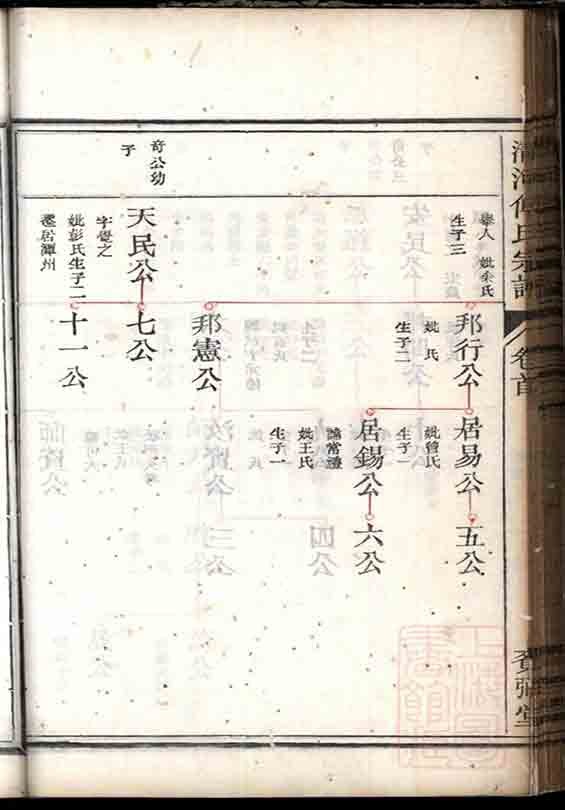 清河傅氏宗譜
卷首
賚弼堂
舉人 妣余氏
生子三
邦行公
妣 氏
生子二
居易公
妣曾氏
生子一
五公
居錫公
諱常禮
妣王氏
生子一
六公
邦憲公
奇公幼
子
天民公
字覺之
妣彭氏生子二
遷居潭州
七公
十一公